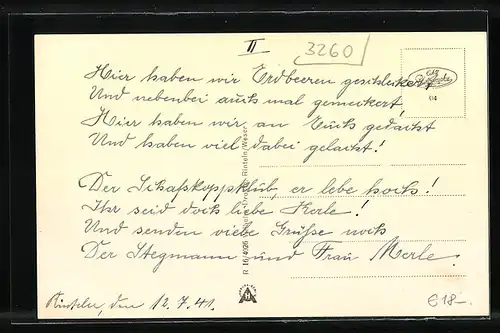 II
3260
Hier haben wir Erdbeeren geschleckert
Und nebenbei auch mal gemeckert,
Hier haben wir an Euch gedacht
Und haben viel dabei gelacht!
Der Schafskoppklub, er lebe hoch!
Ihr seid doch liebe Kerle!
Und senden viele Grüße noch
Der Stegmann und Frau Merle.
Rinteln, den 12.7.41.
€18-.
04
R 16/4926
Rinteln/Weser